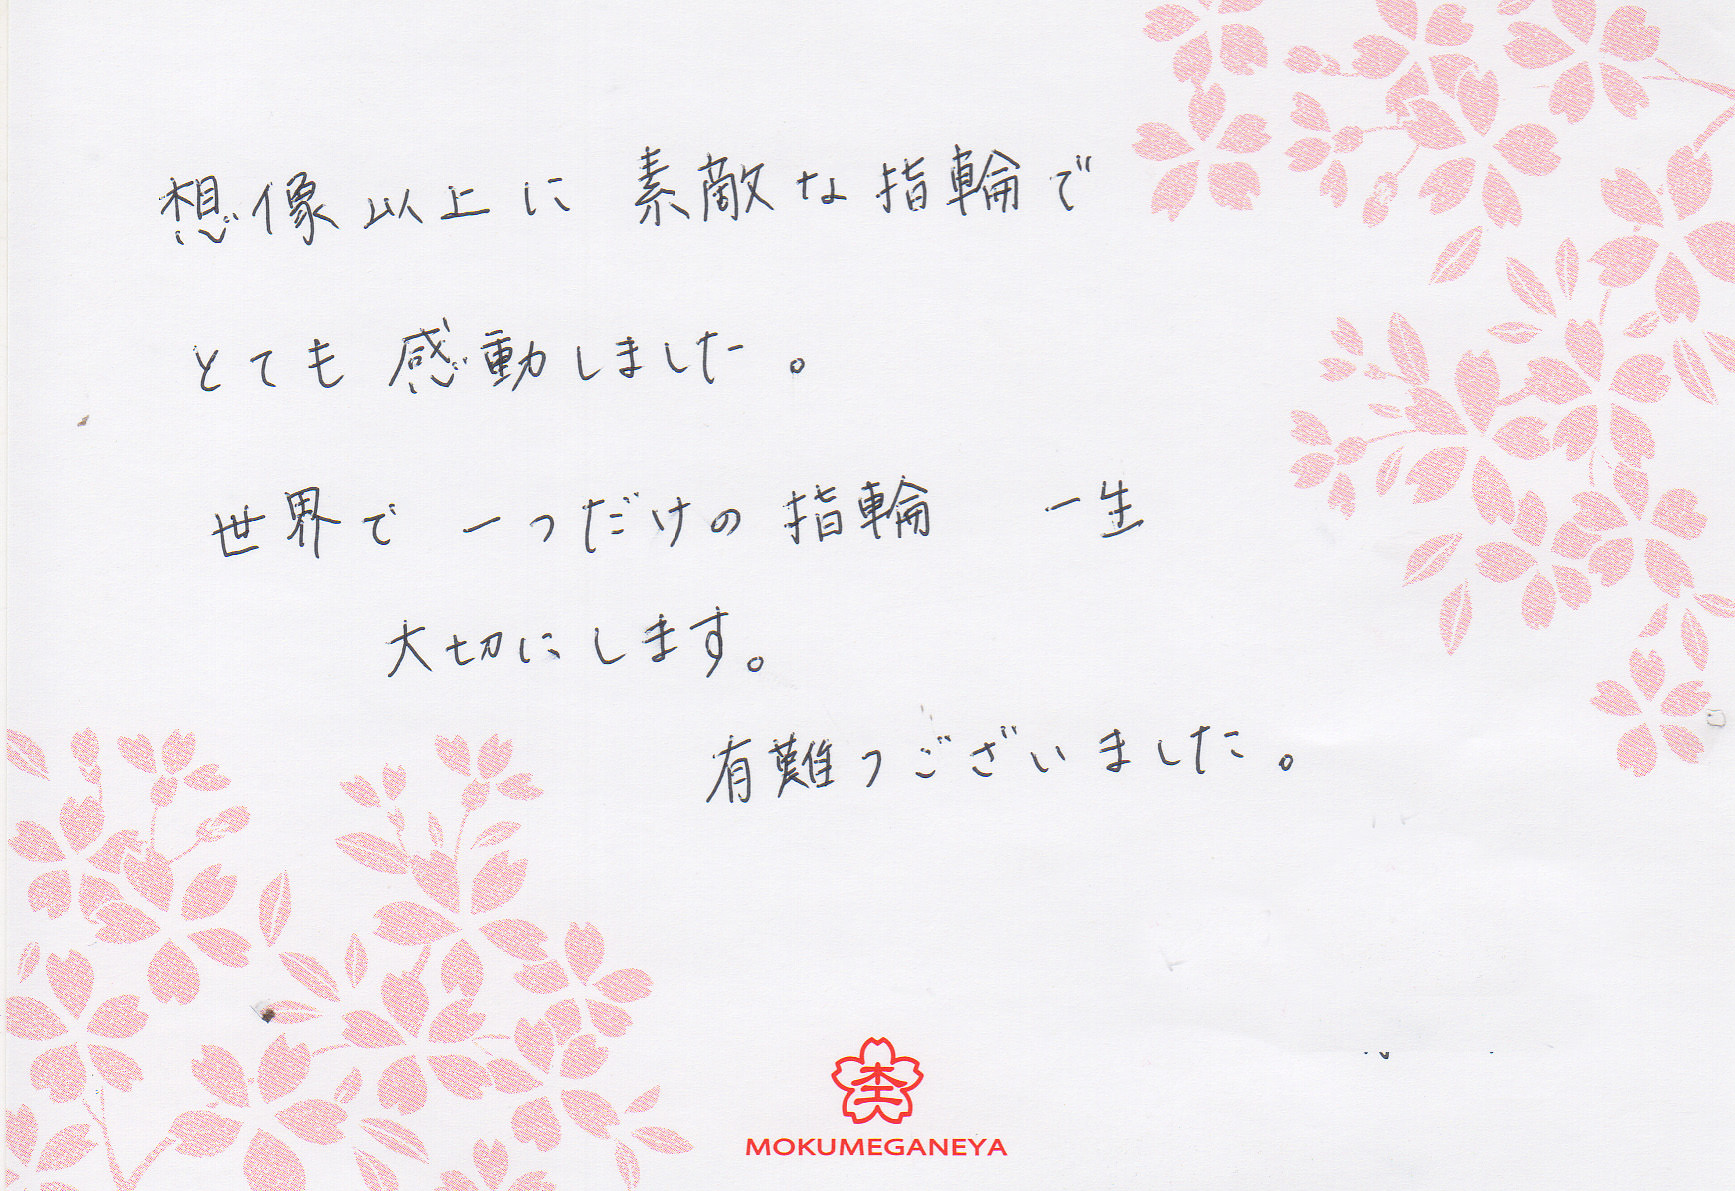 想像以上に素敵な指輪で
とても感動しました。
世界で一つだけの指輪　一生
大切にします。
有難うございました。
MOKUMEGANEYA